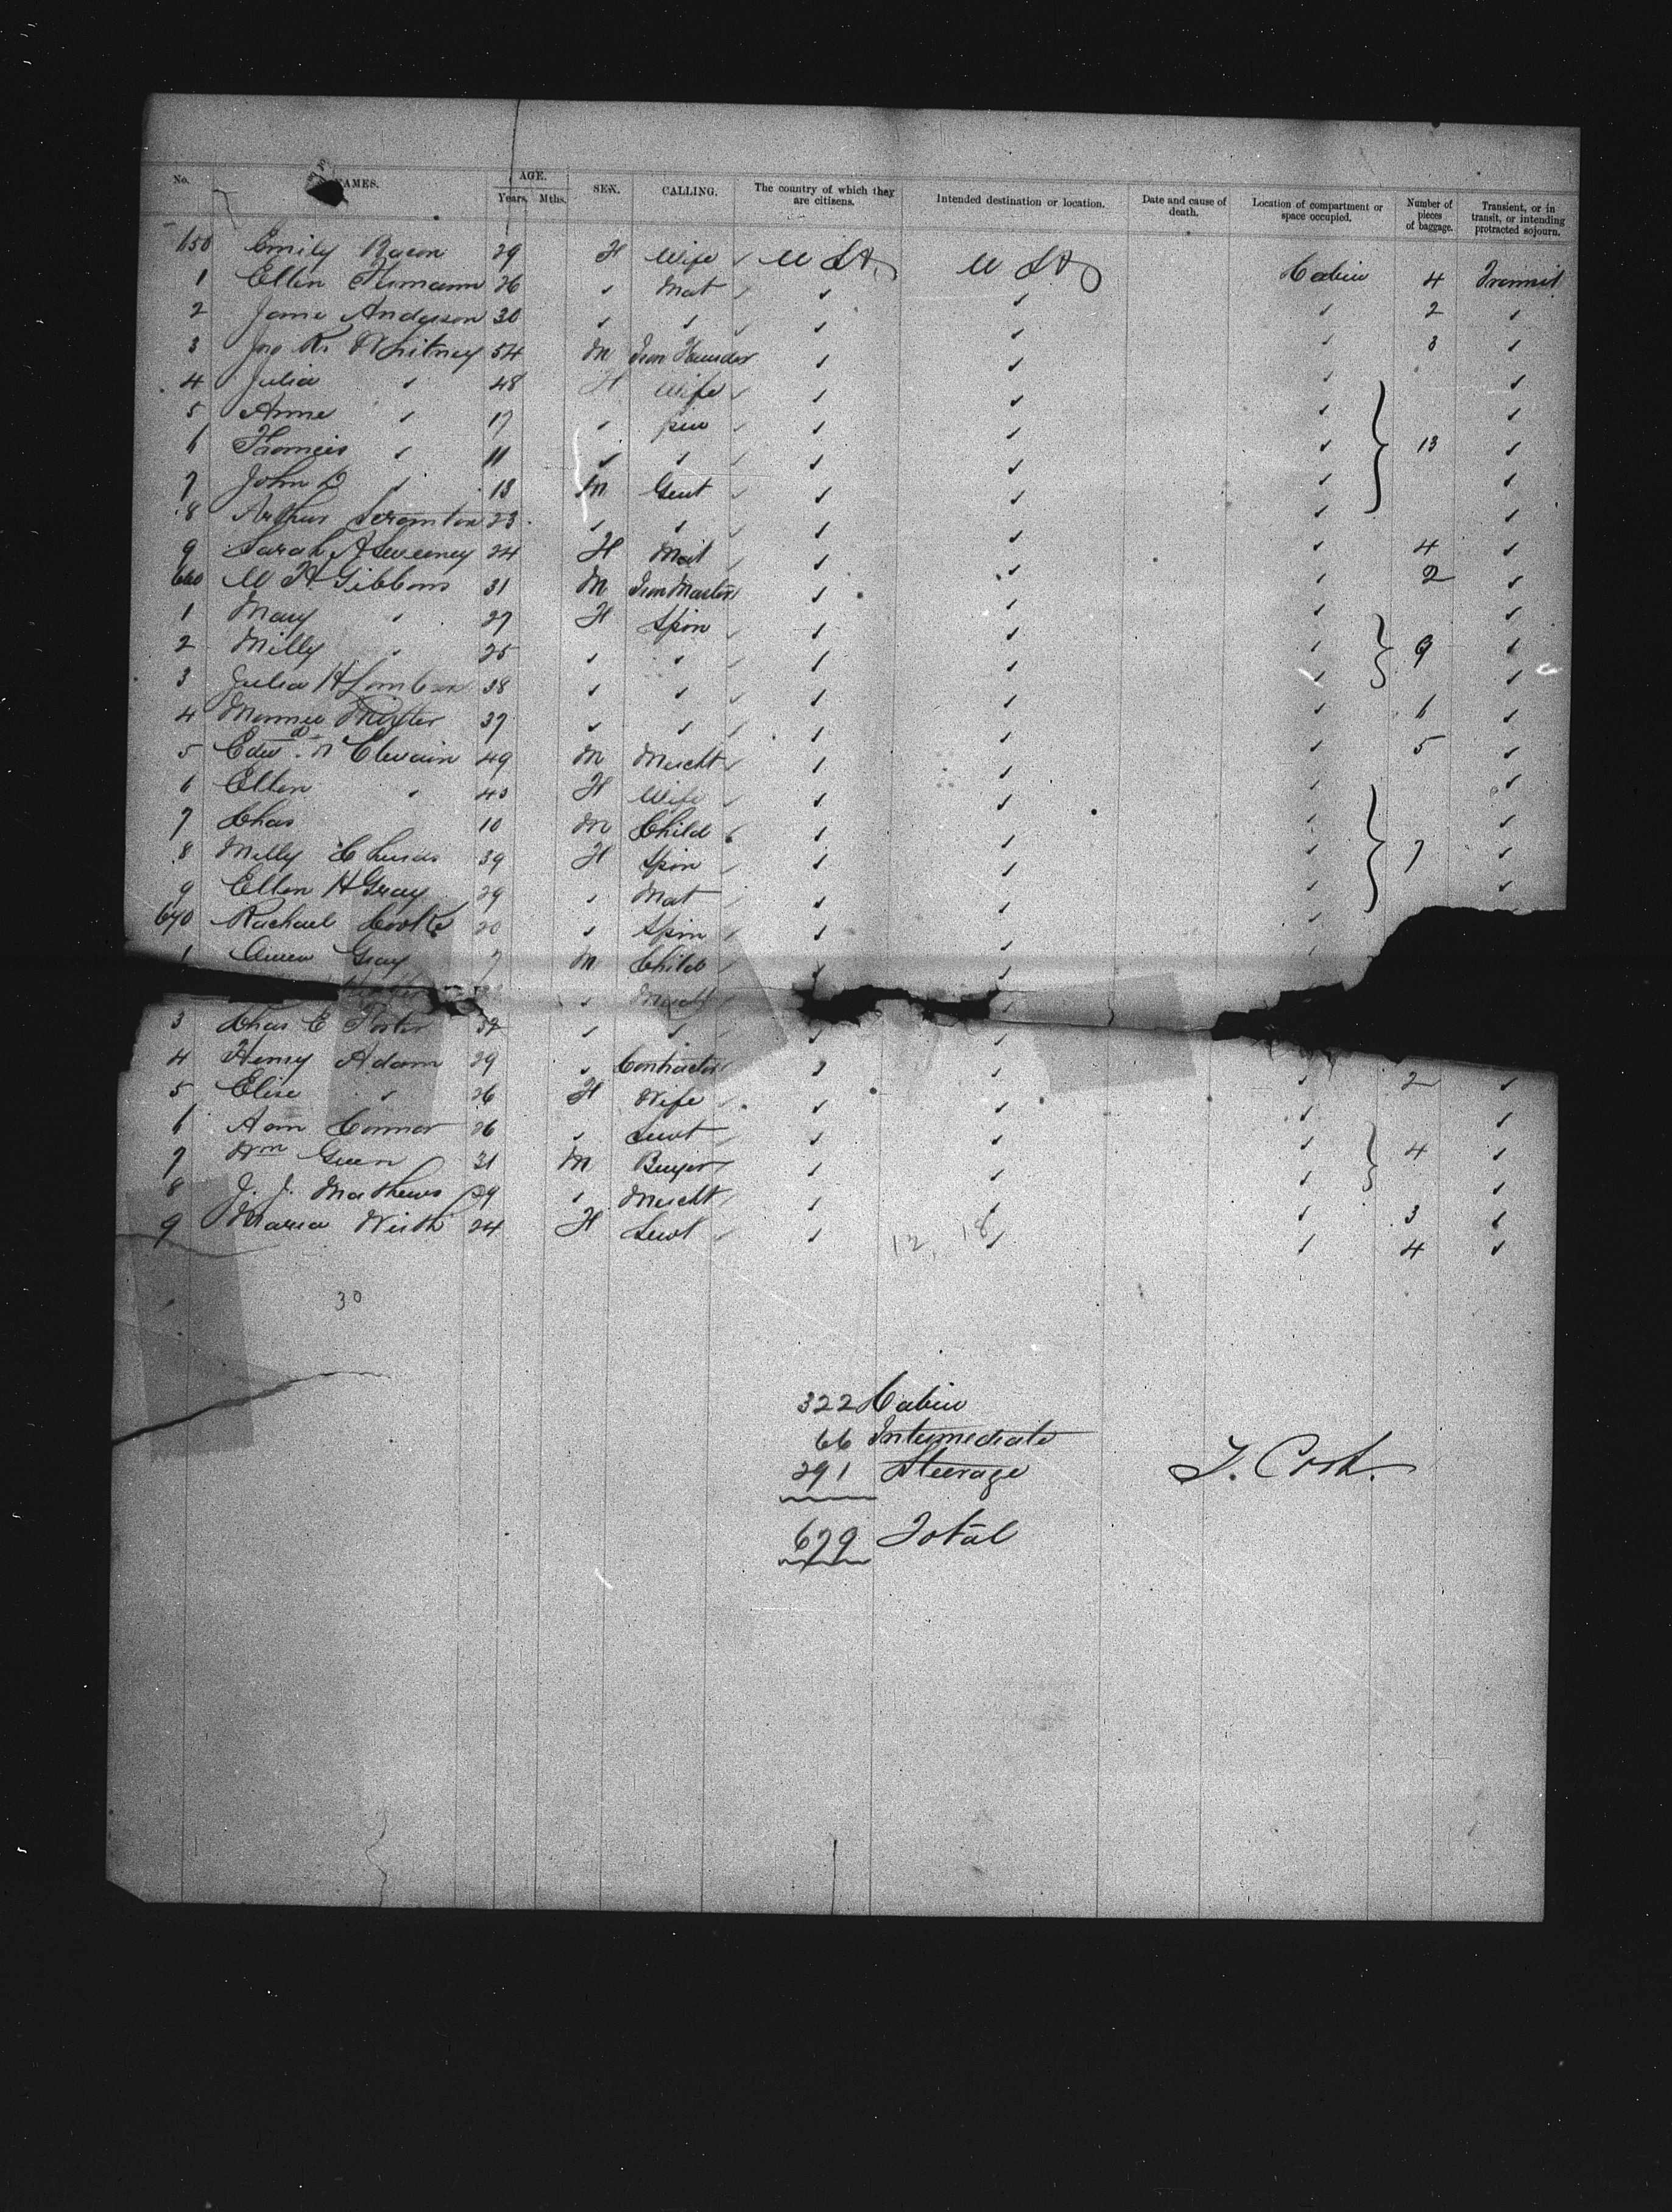 No. NAMES. AGE. Years. Mths. SEX. CALLING. The country of which they are citizens. Intended destination or location. Date and cause of death. Location of compartment or space occupied. Number of pieces of baggage. Transient, or in transit, or intending protracted sojourn.
650 Emily Bacon 29 F Wife U St. U St. Cabin 4 Transit
1 Ellen 26 ✓ Mat ✓ ✓ ✓ 2 ✓
2 Jane Anderson 30 ✓ ✓ ✓ ✓ ✓ 3 ✓
3 Jno R. Whitney 54 M Iron Founder ✓ ✓ ✓ ✓
4 Julia ✓ 48 F Wife ✓ ✓ ✓ ✓
5 Anne ✓ 17 ✓ ✓ ✓ ✓ 13 ✓
6 Thomas ✓ 11 ✓ ✓ ✓ ✓ ✓ ✓
7 John D ✓ 13 M Gent ✓ ✓ ✓ ✓
8 Arthur Scranton 23 ✓ ✓ ✓ ✓ ✓ 4 ✓
9 Sarah A Sweeney 24 F Mat ✓ ✓ ✓ 2 ✓
660 W H Gibbons 31 M Iron Master ✓ ✓ ✓ ✓
1 Mary ✓ 27 F Spin ✓ ✓ ✓ 9 ✓
2 Milly ✓ 25 ✓ ✓ ✓ ✓ ✓ ✓
3 Julia H 38 ✓ ✓ ✓ ✓ ✓ 6 ✓
4 37 ✓ ✓ ✓ ✓ ✓ 5 ✓
5 Edwd 49 M Mercht ✓ ✓ ✓ ✓
6 Ellen ✓ 43 F Wife ✓ ✓ ✓ ✓
7 Chas 10 M Child ✓ ✓ ✓ 7 ✓
8 Milly 39 F Spin ✓ ✓ ✓ ✓
9 Ellen H Gray 29 ✓ Mat ✓ ✓ ✓
670 Rachael Cooke 20 ✓ Spin ✓ ✓ ✓
1 Gray 7 M Child ✓ ✓
✓ Mercht ✓
3 Chas E Porter 32 ✓ ✓ ✓ ✓
4 Henry Adam 29 ✓ Contractor ✓ ✓ ✓ 2 ✓
5 Elise ✓ 26 F Wife ✓ ✓ ✓ ✓
6 Ann Connor 26 ✓ Servt ✓ ✓ ✓ 4 ✓
7 Wm Green 31 M Buyer ✓ ✓ ✓ ✓
8 J. J. Mathews 29 ✓ Mercht ✓ ✓ ✓ 3 ✓
9 Maria Wirth 24 F Servt ✓ ✓ ✓ 4 ✓
12, 18
30
322 Cabin
66 Intermediate
291 Steerage
679 Total